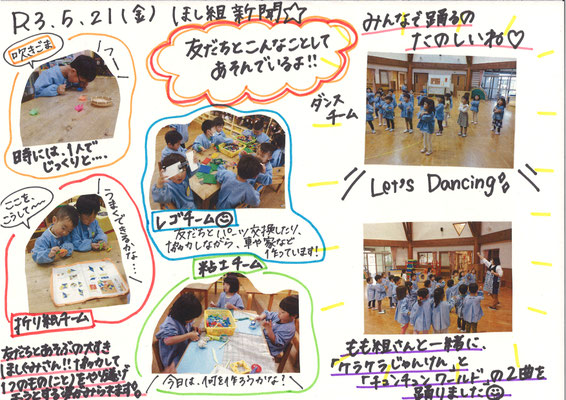 R3.5.21(金) ほし組新聞☆
友だちとこんなことして
あそんでいるよ!!
吹きごま
時には、1人で
じっくりと….
ここを
こうして〜〜
うまくできるかな…
折り紙チーム
友だちとあそぶの大すき
ほしぐみさん!! 協力して
1つのもの(こと)をやり遂げ
レゴチーム
友だちとパーツ交換したり、
協力しながら、車や家など
作っています!
粘土チーム
今日は、何を作ろうかな?
みんなで踊るの
たのしいね♡
ダンス
チーム
Let's Dancing
もも組さんと一緒に、
「ケラケラじゃんけん」と
「チョンチョンワールド」の2曲を
踊りました